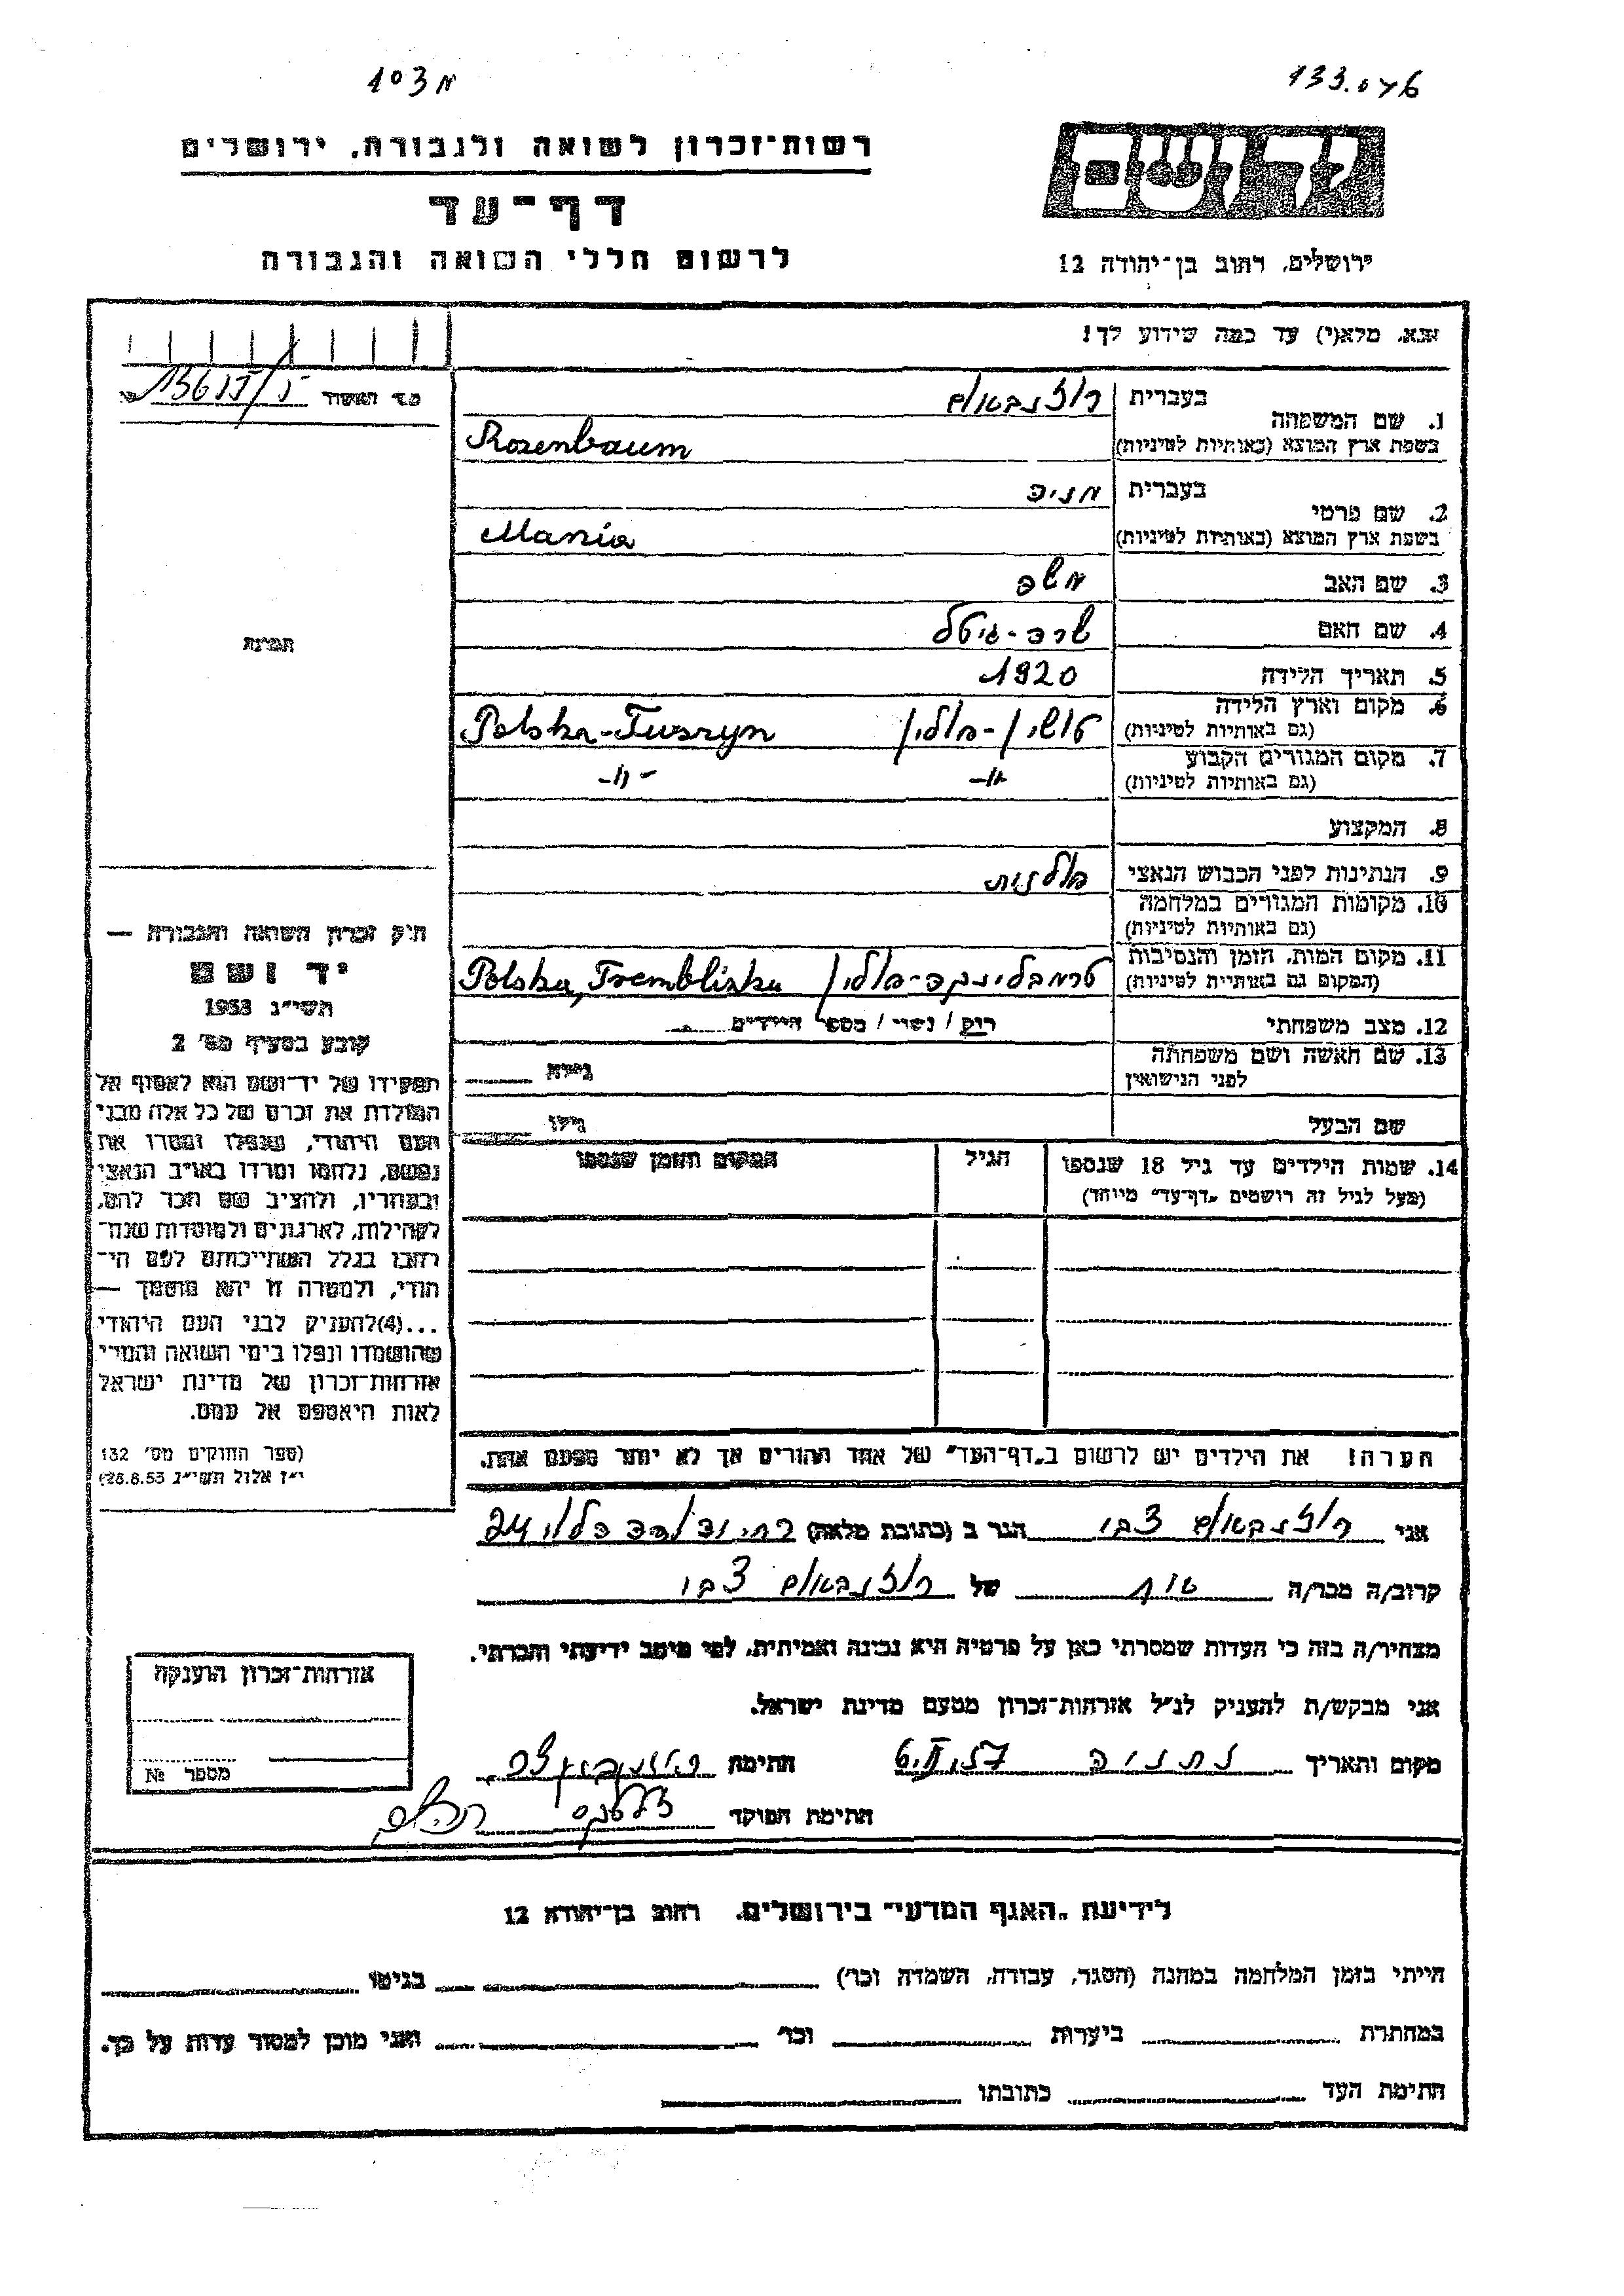 133.046
103 מ
יד ושם
ירושלים, רחוב בן־יהודה 12
רשות־זכרון לשואה ולגבורה, ירושלים
דף־עד
לרשום חללי השואה והגבורה
אנא, מלא(י) עד כמה שידוע לך!
1. שם המשפחה
בעברית רוזנבאום
בשפת ארץ המוצא (באותיות לטיניות) Rozenbaum
2. שם פרטי
בעברית מניה
בשפת ארץ המוצא (באותיות לטיניות) Mania
3. שם האב משה
4. שם האם שרה-גיטל
5. תאריך הלידה 1920
6. מקום וארץ הלידה
(גם באותיות לטיניות) טושין-פולין Polska-Tuszyn
7. מקום המגורים הקבוע
(גם באותיות לטיניות) -"- -"-
8. המקצוע
9. הנתינות לפני הכבוש הנאצי פולנית
10. מקומות המגורים במלחמה
(גם באותיות לטיניות)
11. מקום המות, הזמן והנסיבות
(המקום גם באותיות לטיניות) טרמבלינקה-פולין Polska, Tremblinka
12. מצב משפחתי רוק / נשוי / מספר הילדים
13. שם האשה ושם משפחתה
לפני הנישואין גילה
שם הבעל גילו
14. שמות הילדים עד גיל 18 שנספו הגיל המקום והזמן שנספו
(מעל לגיל זה רושמים „דף־עד" מיוחד)
הערה! את הילדים יש לרשום ב„דף־העד" של אחד ההורים אך לא יותר מפעם אחת.
תמונה
חוק זכרון השואה והגבורה —
יד ושם
תשי״ג 1953
קובע בסעיף מס׳ 2
תפקידו של יד־ושם הוא לאסוף אל
המולדת את זכרם של כל אלה מבני
העם היהודי, שנפלו ומסרו את
נפשם, נלחמו ומרדו באויב הנאצי
ובעוזריו, ולהציב שם וזכר להם,
לקהילות, לארגונים ולמוסדות שנח־
רבו בגלל השתייכותם לעם הי־
הודי, ולמטרה זו יהא מוסמך —
...(4)להעניק לבני העם היהודי
שהושמדו ונפלו בימי השואה והמרי
אזרחות־זכרון של מדינת ישראל
לאות היאספם אל עמם.
(ספר החוקים מס׳ 132
י״ז אלול תשי״ג 28.8.53)
אני רוזנבאום צבי הגר ב (כתובת מלאה)
קרוב/ה מכר/ה של רוזנבאום צבי
מצהיר/ה בזה כי העדות שמסרתי כאן על פרטיה היא נכונה ואמיתית, לפי מיטב ידיעתי והכרתי.
אני מבקש/ת להעניק לנ״ל אזרחות־זכרון מטעם מדינת ישראל.
מקום ותאריך נתניה חתימה
חתימת הפוקד
אזרחות־זכרון הוענקה
מספר №
לידיעת „האגף המדעי" בירושלים, רחוב בן־יהודה 12
הייתי בזמן המלחמה במחנה (הסגר, עבודה, השמדה וכו׳) בגיטו
במחתרת ביערות וכו׳ ואני מוכן למסור עדות על כך.
חתימת העד כתובתו